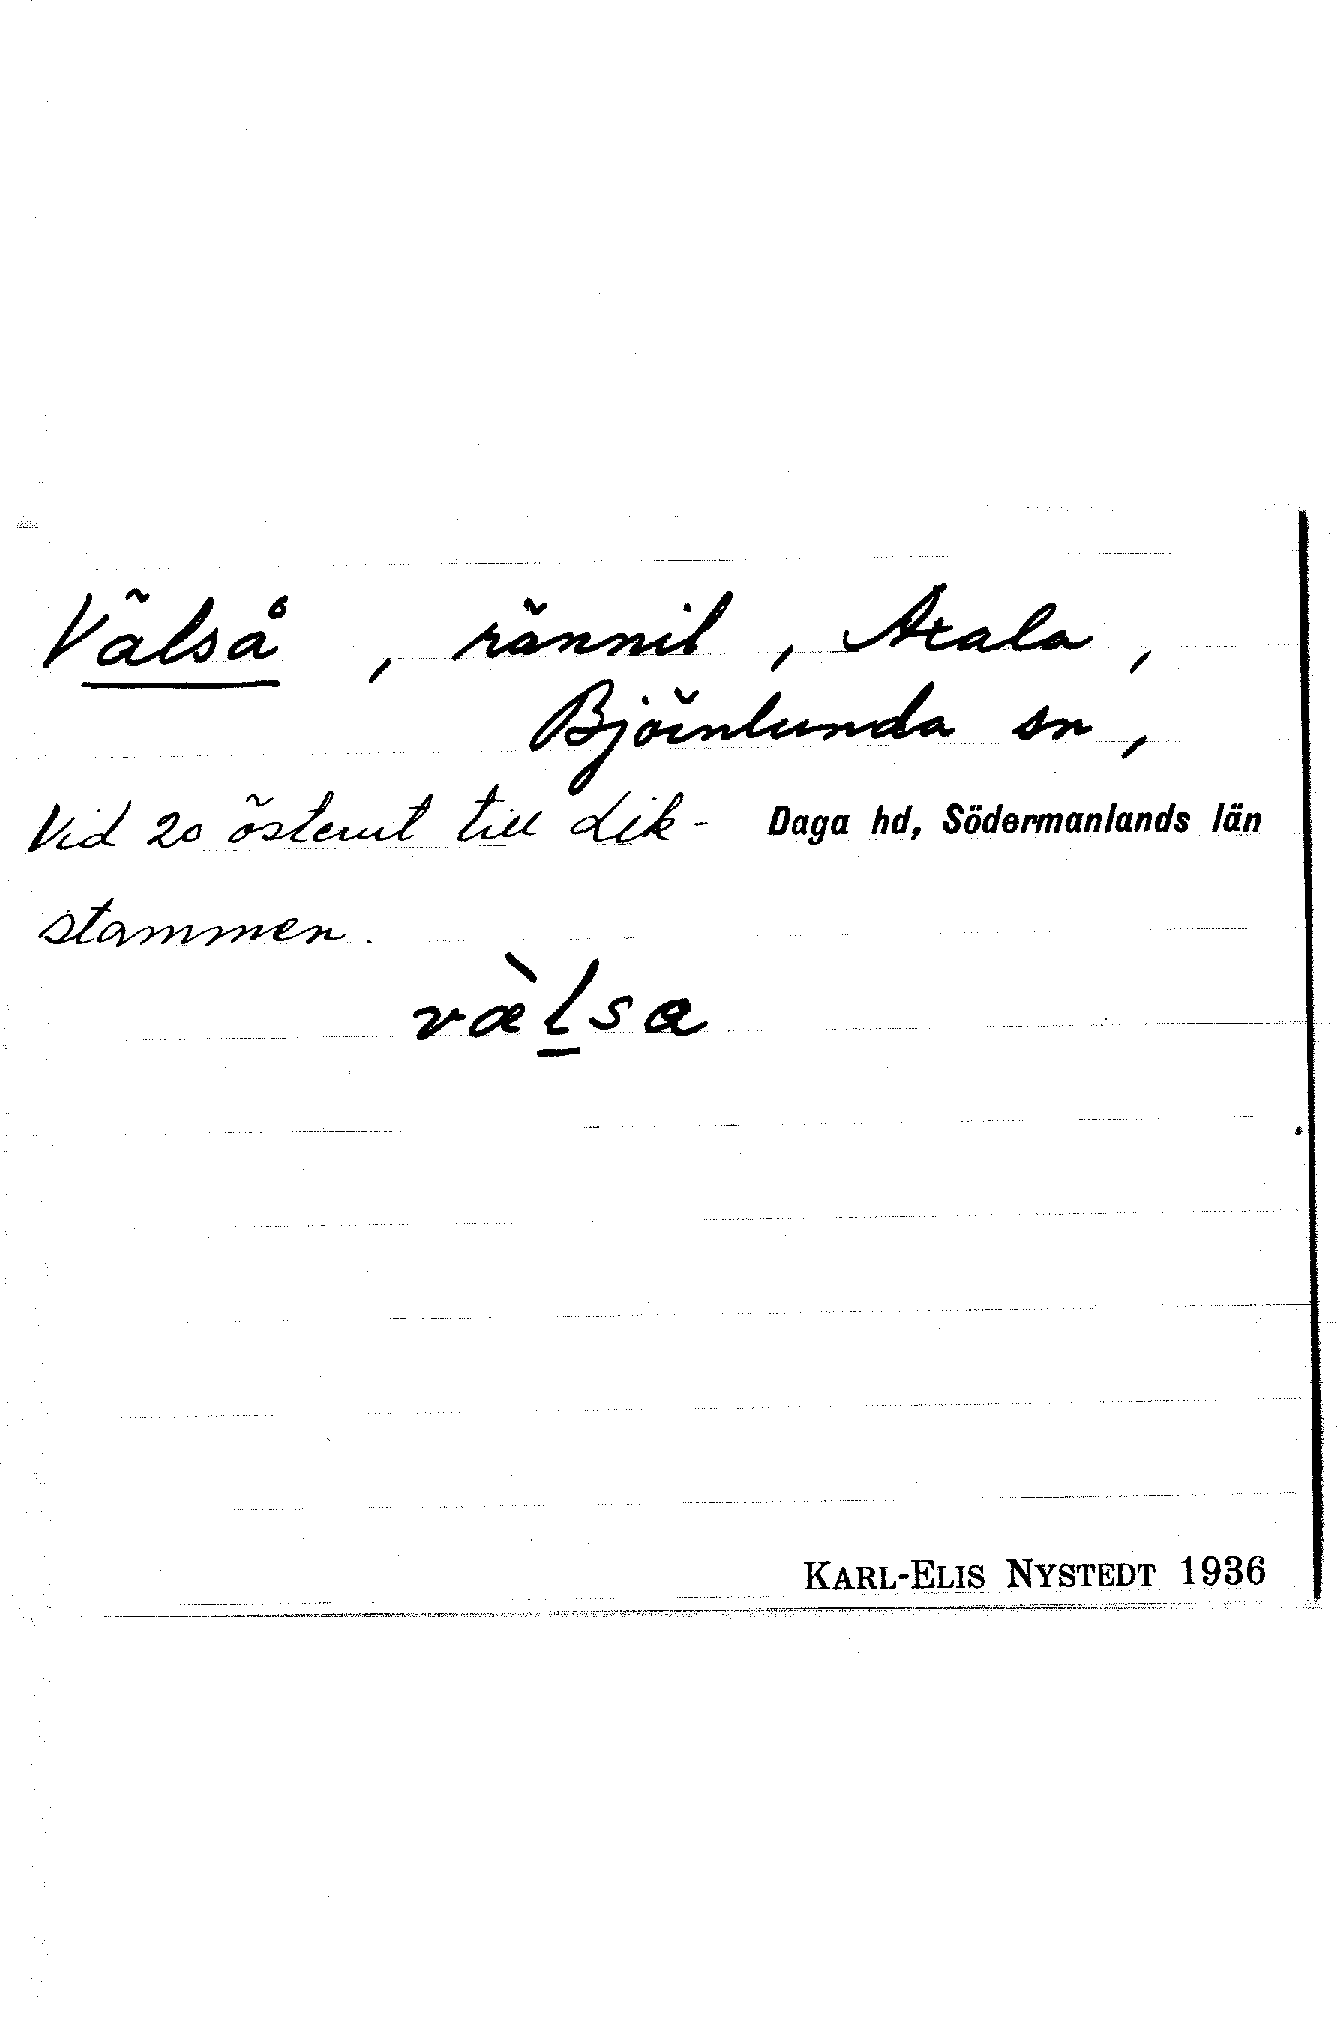 Välså, rännil, Axala,
Björnlunda sn,
Vid 20 österut till dik- Daga hd, Södermanlands län
stammen.
vælsa
KARL-ELIS NYSTEDT 1936